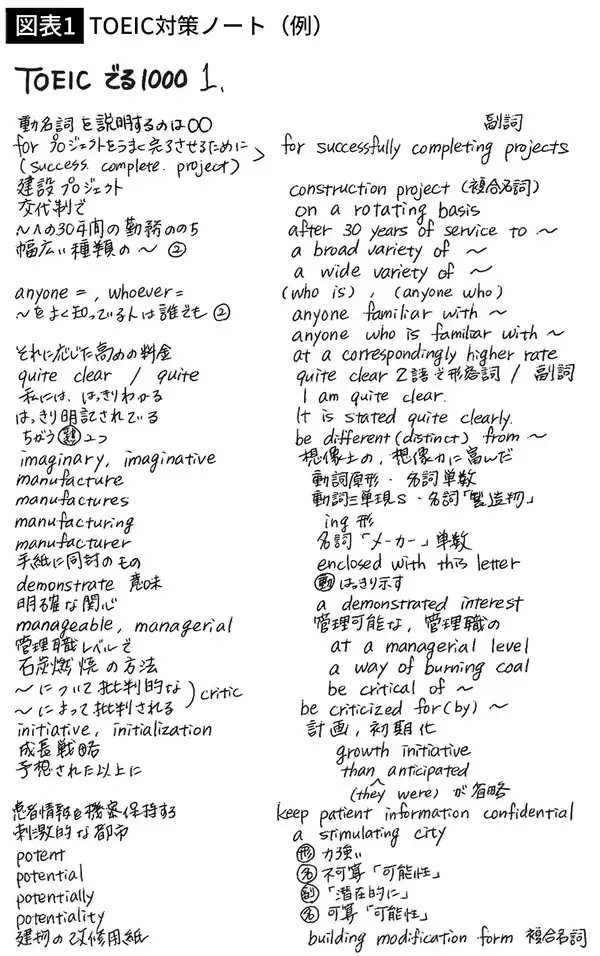 図表1 TOEIC対策ノート（例）
TOEIC でる1000 1.
動名詞を説明するのは○○ 副詞
for プロジェクトをうまく完了させるために for successfully completing projects
(success. complete. project)
建設プロジェクト construction project (複合名詞)
交代制で on a rotating basis
〜への30年間の勤務ののち after 30 years of service to 〜
幅広い種類の〜 ② a broad variety of 〜
a wide variety of 〜
anyone = , whoever = (who is) , (anyone who)
〜をよく知っている人は誰でも ② anyone familiar with 〜
anyone who is familiar with 〜
それに応じた高めの料金 at a correspondingly higher rate
quite clear / quite quite clear 2語で形容詞 / 副詞
私には、はっきりわかる I am quite clear.
はっきり明記されている It is stated quite clearly.
ちがう 2つ be different (distinct) from 〜
imaginary, imaginative 想像上の, 想像力に富んだ
manufacture 動詞原形・名詞単数
manufactures 動詞三単現s・名詞「製造物」
manufacturing ing形
manufacturer 名詞「メーカー」単数
手紙に同封のもの enclosed with this letter
demonstrate 意味 動 はっきり示す
明確な関心 a demonstrated interest
manageable, managerial 管理可能な, 管理職の
管理職レベルで at a managerial level
石炭燃焼の方法 a way of burning coal
〜について批判的な be critical of 〜
〜によって批判される ) critic be criticized for (by) 〜
initiative, initialization 計画, 初期化
成長戦略 growth initiative
予想された以上に than anticipated
(they were) が省略
患者情報を機密保持する keep patient information confidential
刺激的な都市 a stimulating city
potent 形 力強い
potential 名 不可算「可能性」
potentially 副「潜在的に」
potentiality 名 可算「可能性」
建物の改修用紙 building modification form 複合名詞